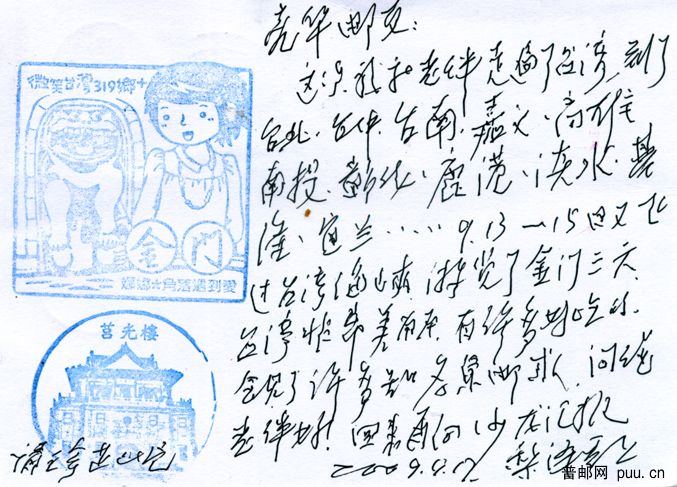 微笑台灣319鄉+
金门
莒光樓
亮华邮友:
这次我和老伴走遍了台湾,到了
台北、台中、台南、嘉义、高雄
南投、彰化、鹿港、淡水、基
隆、宜兰……9.13—15日又飞
过台湾海峡,游览了金门三天
台湾非常美丽,有许多好吃的
会见了许多知名集邮家,问候
老伴好!回来再向沙龙汇报
2009.9.17.
普邮网 puu.cn